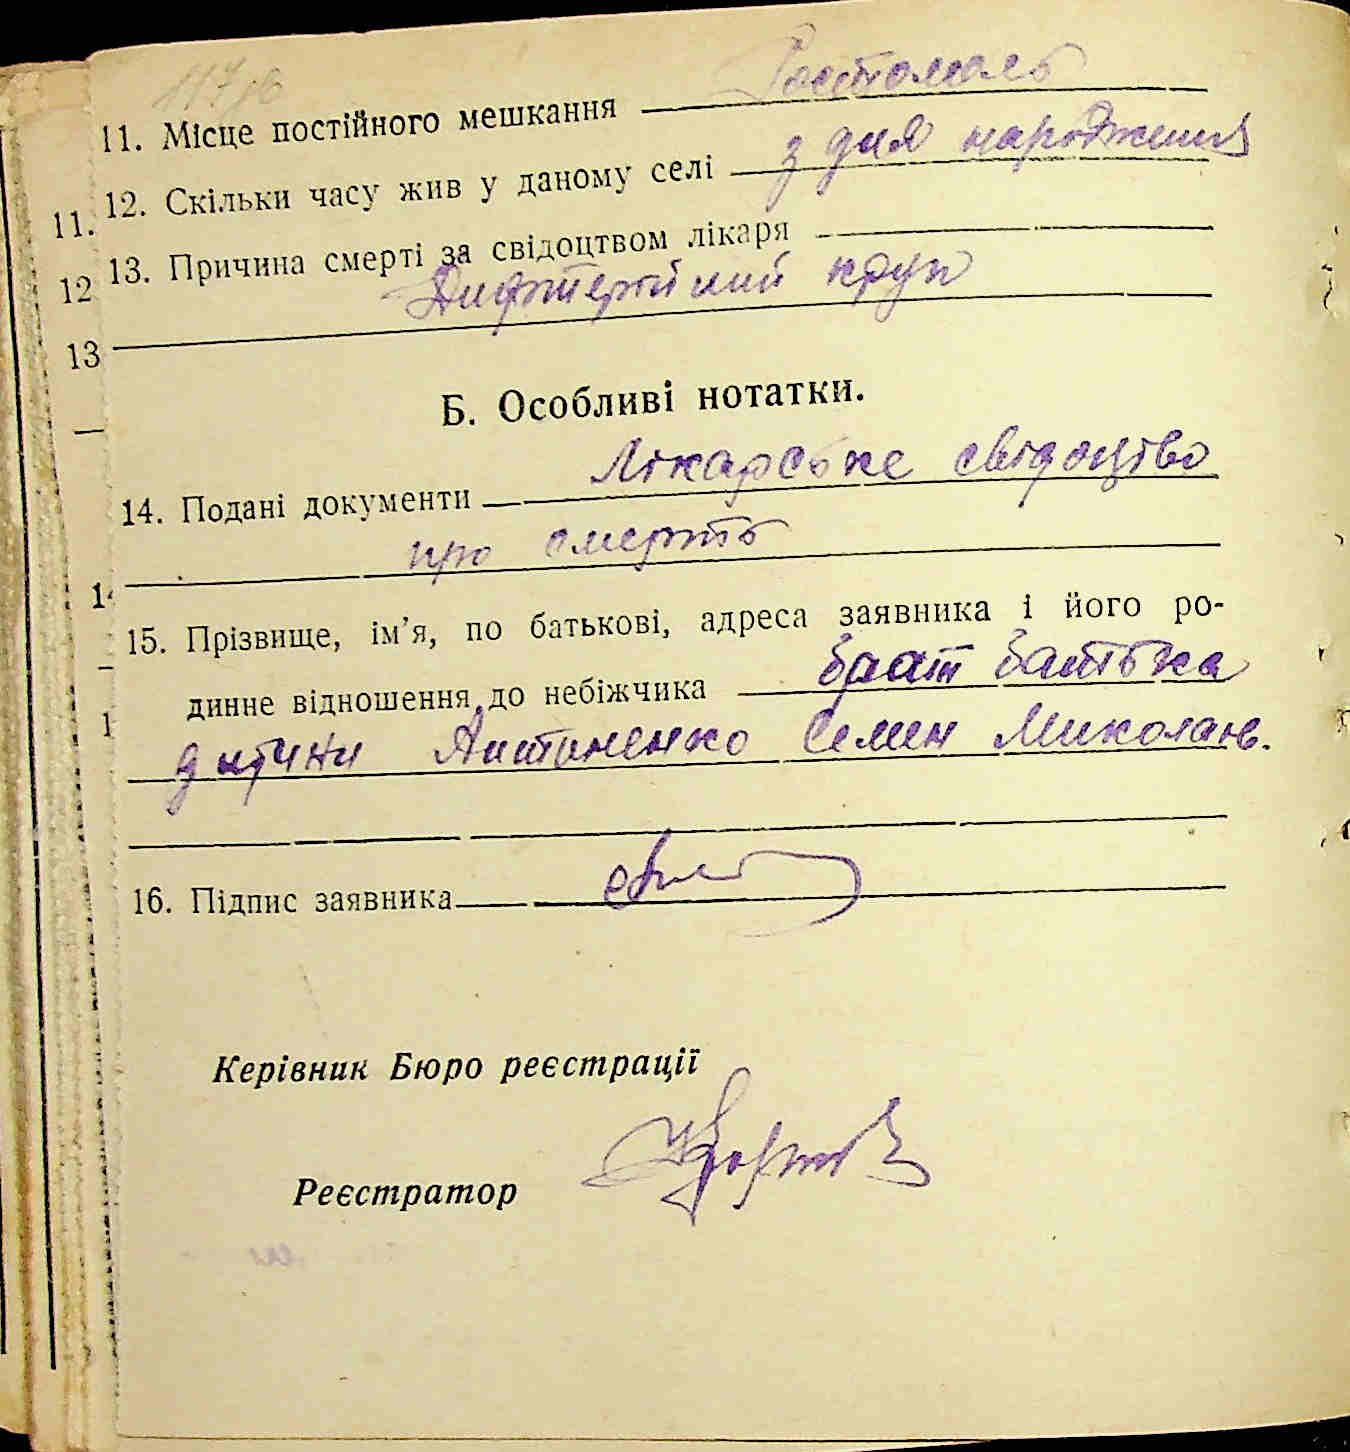 11. Місце постійного мешкання Гостомель
12. Скільки часу жив у даному селі з дня народження
13. Причина смерті за свідоцтвом лікаря
Дифтерійний круп
Б. Особливі нотатки.
14. Подані документи Лікарське свідоцтво
про смерть
15. Прізвище, ім’я, по батькові, адреса заявника і його ро-
динне відношення до небіжчика брат батька
дитини Антоненко Семен Миколаєв.
16. Підпис заявника
Керівник Бюро реєстрації
Реєстратор
11.
12
13